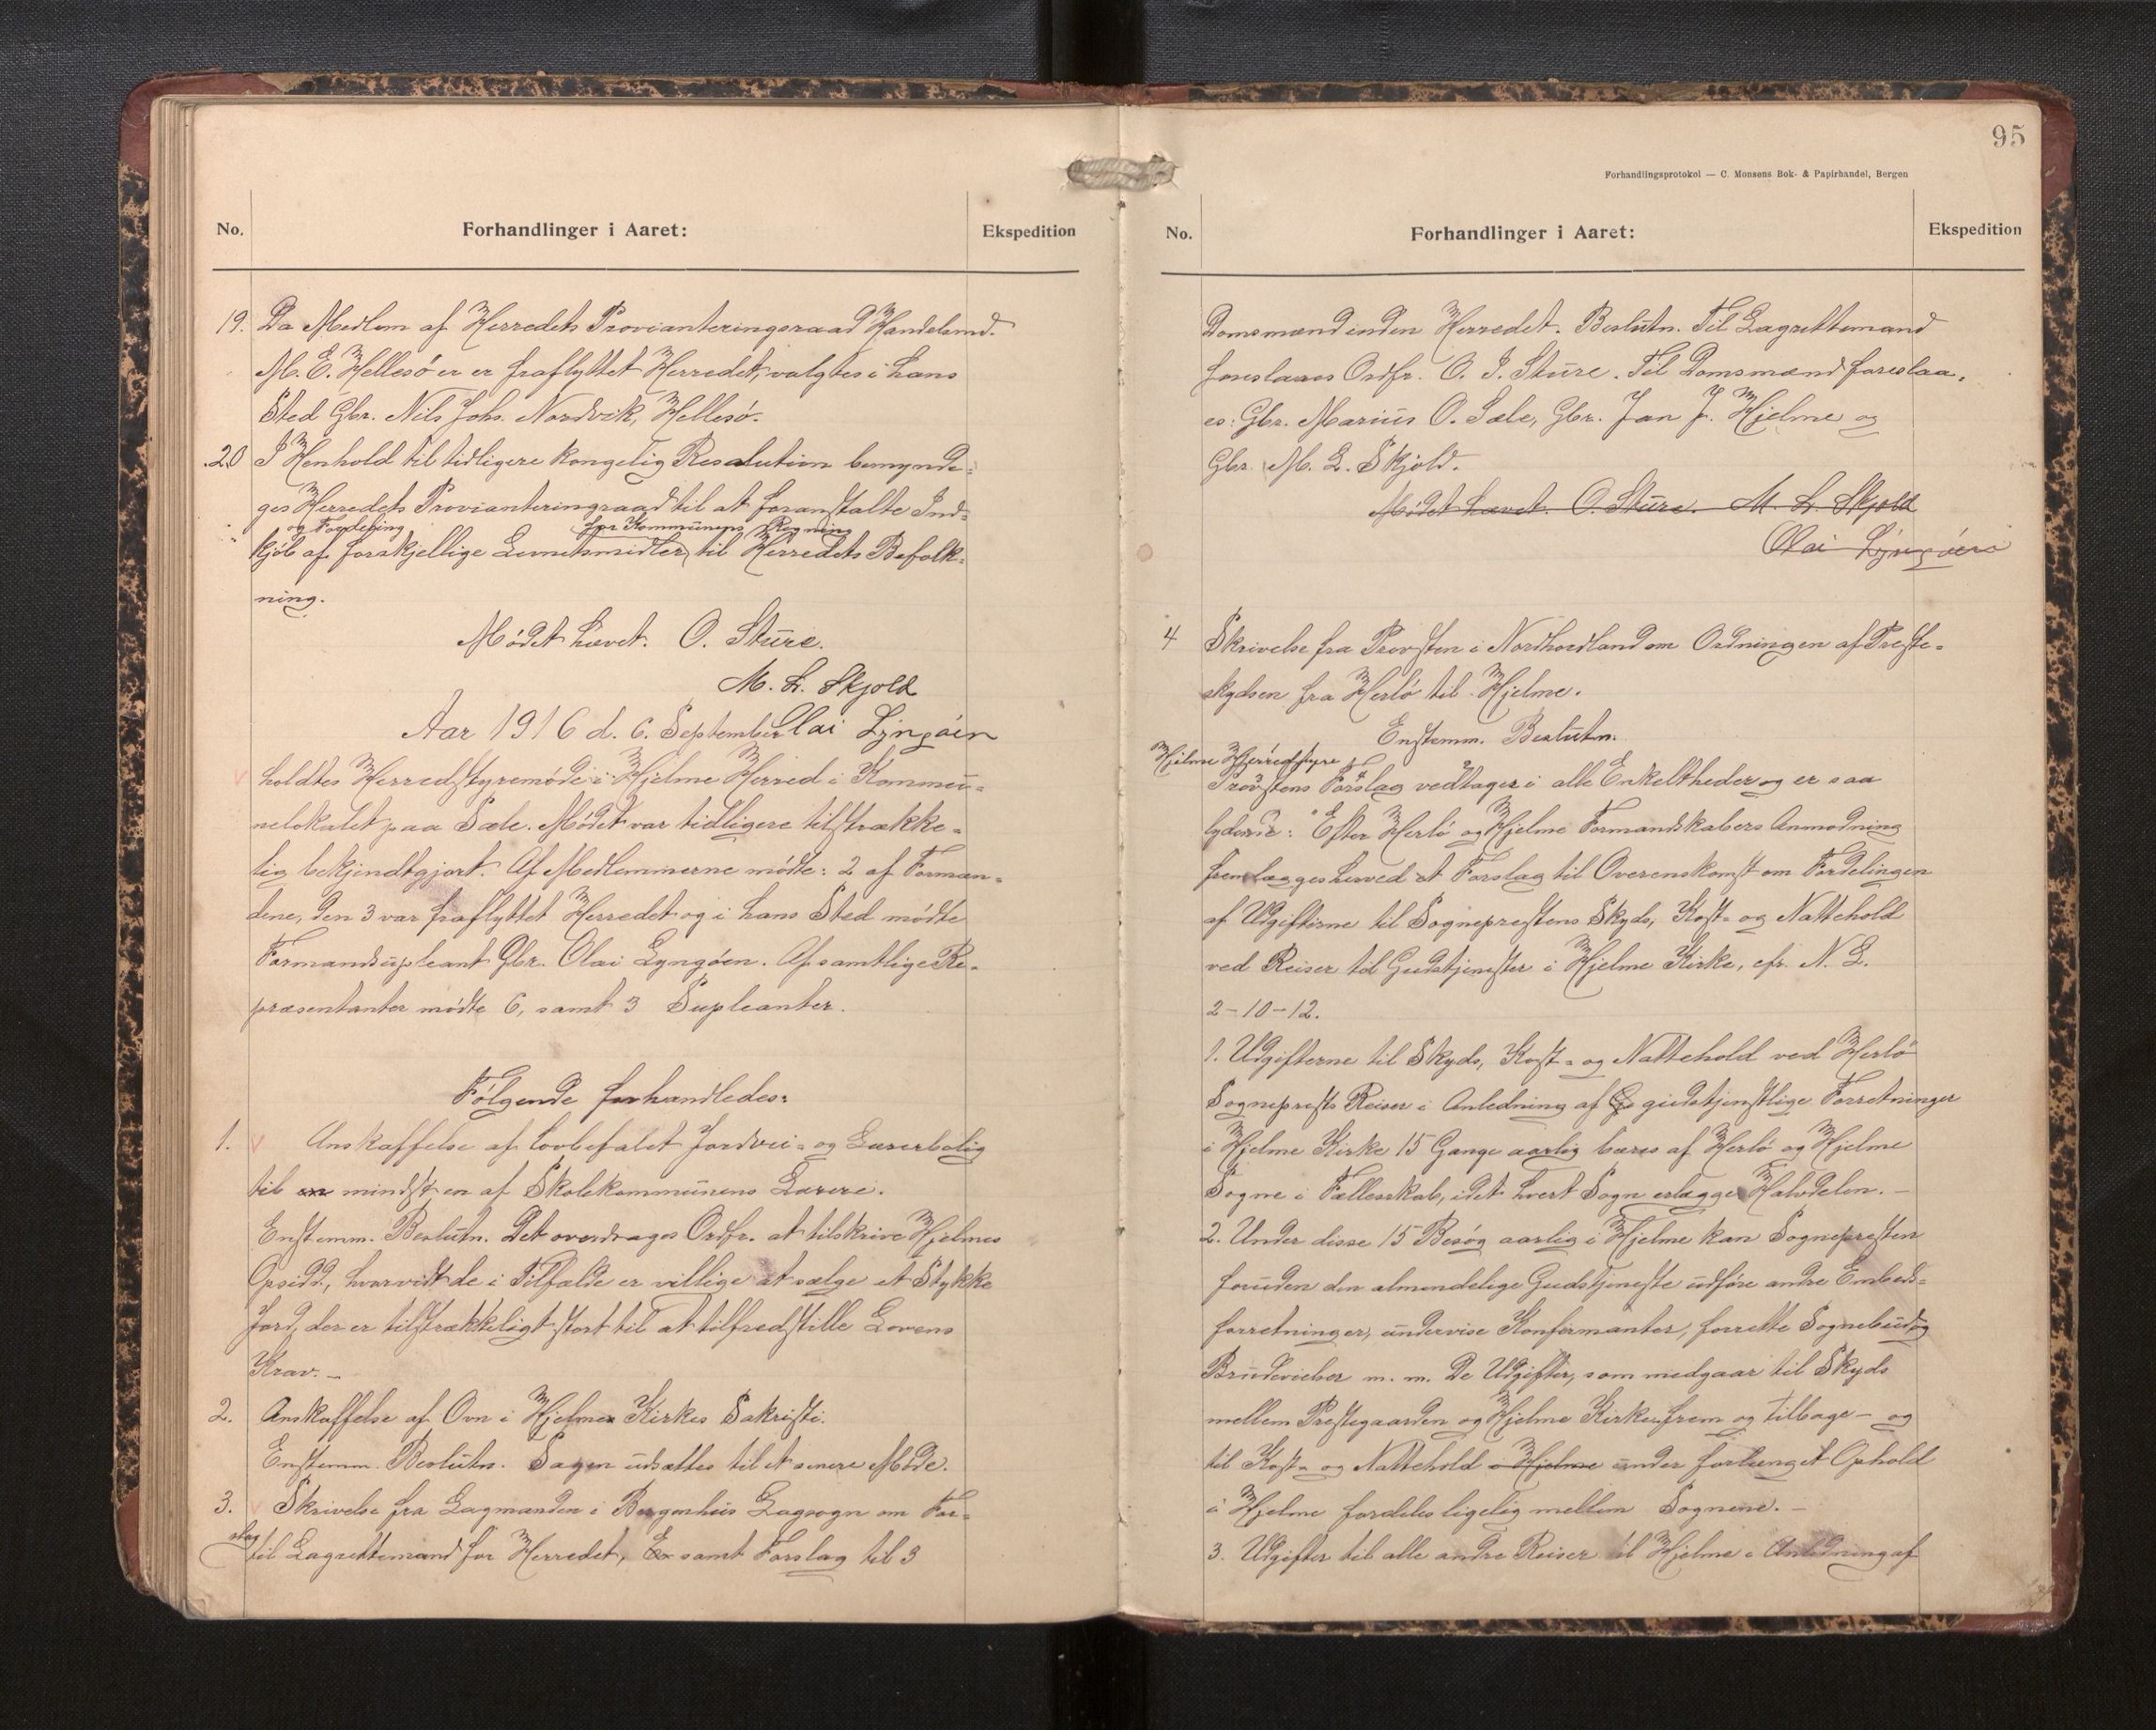 No. Forhandlinger i Aaret: Ekspedition
19. Da Medlem af Herredets Provianteringsraad Handelsmd.
M. E. Hellesö er er fraflyttet Herredet, valgtes i hans
Sted Gbr. Nils Johs. Nordvik, Hellesö.
20 I Henhold til tidligere kongelig Resolution bemyndi-
ges Herredets Provianteringsraad til at foranstalte Ind-
og Fordeling for Kommünens Regning
kjöb af forskjellige Levnetsmidler til Herredets Befolk-
ning.
Mödet hævet. O. Stüre.
M. L. Skjold
Aar 1916 d. 6. September Olai Lyngöen
holdtes Herredstyremöde i Hjelme Herred i Kommü-
nelokalet paa Sæle. Mödet var tidligere tilstrække-
lig bekjendtgjort. Af Medlemmerne mödte: 2 af Formæn-
dene, den 3 var fraflyttet Herredet og i hans Sted mödte
Formandsüpleant Gbr. Olai Lyngöen. Af samtlige Re-
præsentanter mödte 6, samt 3 Supleanter.
Fölgende forhandledes:
1. Anskaffelse af lovbefalet Jordvei- og Lærerbolig
til en mindst en af Skolekommünens Lærere.
Enstemm. Beslütn. Det overdrages Ordfr. at tilskrive Hjelmes
Opsidd., hvorvidt de i Tilfælde er villige at sælge et Stykke
Jord, der er tilstrækkeligt stort til at tilfredstille Lovens
Krav. –
2. Anskaffelse af Ovn i Hjelme Kirkes Sakristi.
Enstemm. Beslütn. Sagen üdsættes til et senere Möde.
3. Skrivelse fra Lagmanden i Bergenhüs Lagsogn om For-
slag til Lagrettemand for Herredet, En samt Forslag til 3
95
Forhandlingsprotokol — C. Monsens Bok- & Papirhandel, Bergen
No. Forhandlinger i Aaret: Ekspedition
Domsmænd inden Herredet. Beslütn. Til Lagrettemand
foreslaaes Ordfr. O. I. Stüre. Til Domsmænd foreslaa-
es: Gbr. Mariüs O. Sæle, Gbr. Jan J. Hjelme og
Gbr. M. L. Skjold.
Mödet hævet. O. Stüre. M. L. Skjold
Olai Lyngöen
4 Skrivelse fra Provsten i Nordhordland om Ordningen af Preste-
skydsen fra Herlö til Hjelme.
Enstemm. Beslütn.
Hjelme Herredstyre
Provstens Forslag vedtages i alle Enkeltheder og er saa
lydende: "Efter Herlö og Hjelme Formandskabers Anmodning
fremlægges herved et Forslag til Overenskomst om Fordelingen
af Udgifterne til Sogneprestens Skyds, Kost- og Nattehold
ved Reiser til Gudstjenester i Hjelme Kirke, cfr. N. L.
2–10–12.
1. Udgifterne til Skyds, Kost- og Nattehold ved Herlö
Sogneprests Reiser i Anledning af güdstjenstlige Forretninger
i Hjelme Kirke 15 Gange aarlig bæres af Herlö og Hjelme
Sogne i Fællesskab, idet hvert Sogn erlægge Halvdelen. –
2. Under disse 15 Besög aarlig i Hjelme kan Sognepresten
foruden den almindelige Gudstjeneste üdföre andre Embeds-
forretninger, ündervise Konfirmanter, forrette Sognebüd og
Brüdevielser m. m. De Udgifter, som medgaar til Skyds
mellem Prestegaarden og Hjelme Kirke frem og tilbage – og
til Kost- og Nattehold i Hjelme ünder forlænget Ophold
i Hjelme fordeles ligelig mellem Sognene. –
3. Udgifter til alle andre Reiser til Hjelme i Anledning af